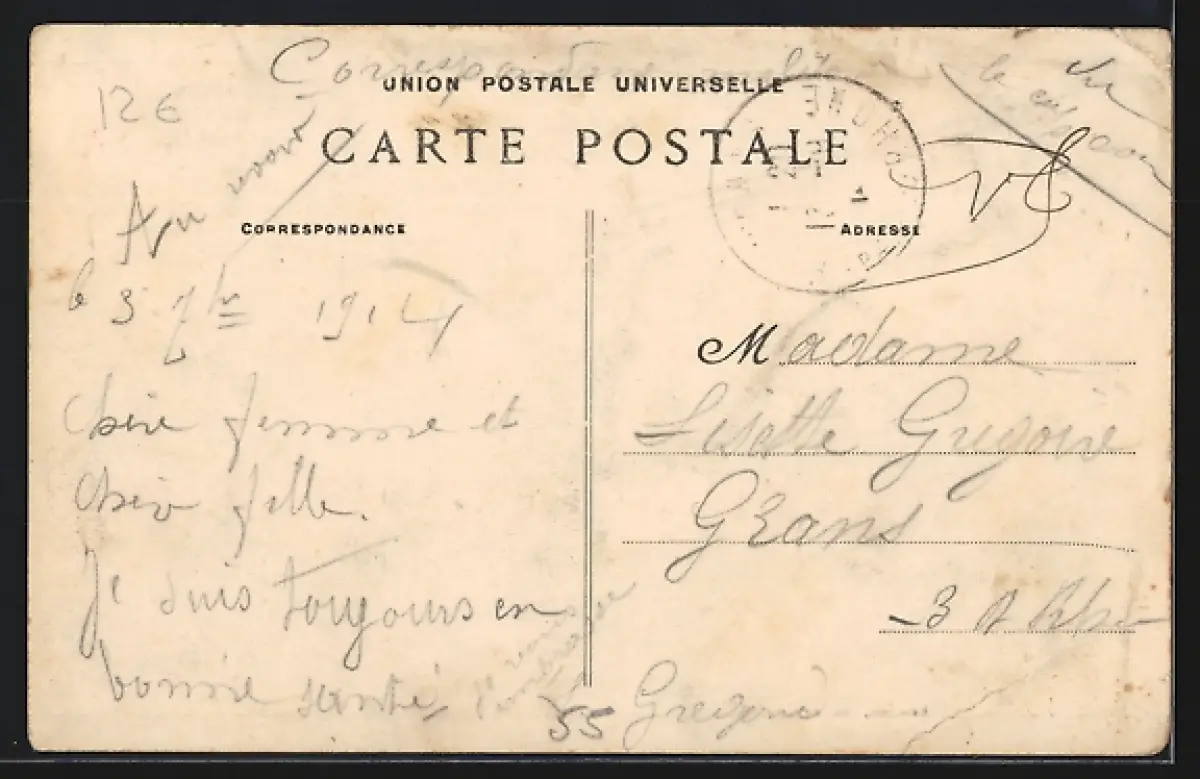 Correspondance
UNION POSTALE UNIVERSELLE
12€
CARTE POSTALE
Au revoir
CORRESPONDANCE
ADRESSE
le 3 7bre 1914
chère femme et
chère fille.
Je suis tougours en
bonne santé
Madame
Lisette Gregoire
Grans
B d Rhô
55
Gregoire